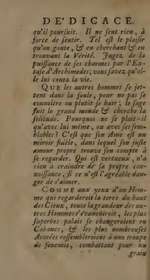 DE'DICACE.
qu'il poursuit. Il ne sent rien, à
force de sentir. Tel est le plaisir
qu'on goute, & en cherchant & en
trouvant la Vérité. Jugez de la
puissance de ses charmes par l'Ex-
tase d'Archimedes; vous savez qu'el-
le lui couta la vie.
QUE les autres hommes se jet-
tent dans la foule, pour ne pas se
connoître ou plutôt se haïr; le sage
fuit le grand monde & cherche la
solitude. Pourquoi ne se plait-il
qu'avec lui même, ou avec ses sem-
blables? C'est que son Ame est un
miroir fidèle, dans lequel son juste
amour propre trouve son compte à
se regarder. Qui est vertueux, n'a
rien à craindre de sa propre con-
noissance, si ce n'est l'agréable dan-
ger de s'aimer.
COMME aux yeux d'un Hom-
me qui regarderoit la terre du haut
des Cieux, toute la grandeur des au-
tres Hommes s'évanouïroit, les plus
superbes palais se changeroient en
Cabanes, & les plus nombreuses
Armées ressembleroient à une troupe
de fourmis, combattant pour un
grain